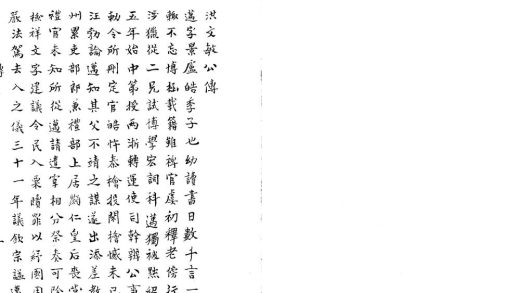 洪文敏公傳
邁字景盧皓季子也幼讀書日數千言一
輒不忘博極載籍雖稗官虞初釋老傍行
涉獵從二兄試博學宏詞科邁獨被黜紹
五年始中第授兩浙轉運使司幹辦公事
勅令所刪定官皓忤秦檜投閑檜憾未已
汪勃論邁知其父不靖之謀遂出添差教
州累吏部郎兼禮部上居顯仁皇后喪當
禮官未知所從邁請遣宰相分祭奏可除
檢祥文字建議令民入粟贖罪以紓國用
嚴法駕出入之儀三十一年議欽宗謚邁